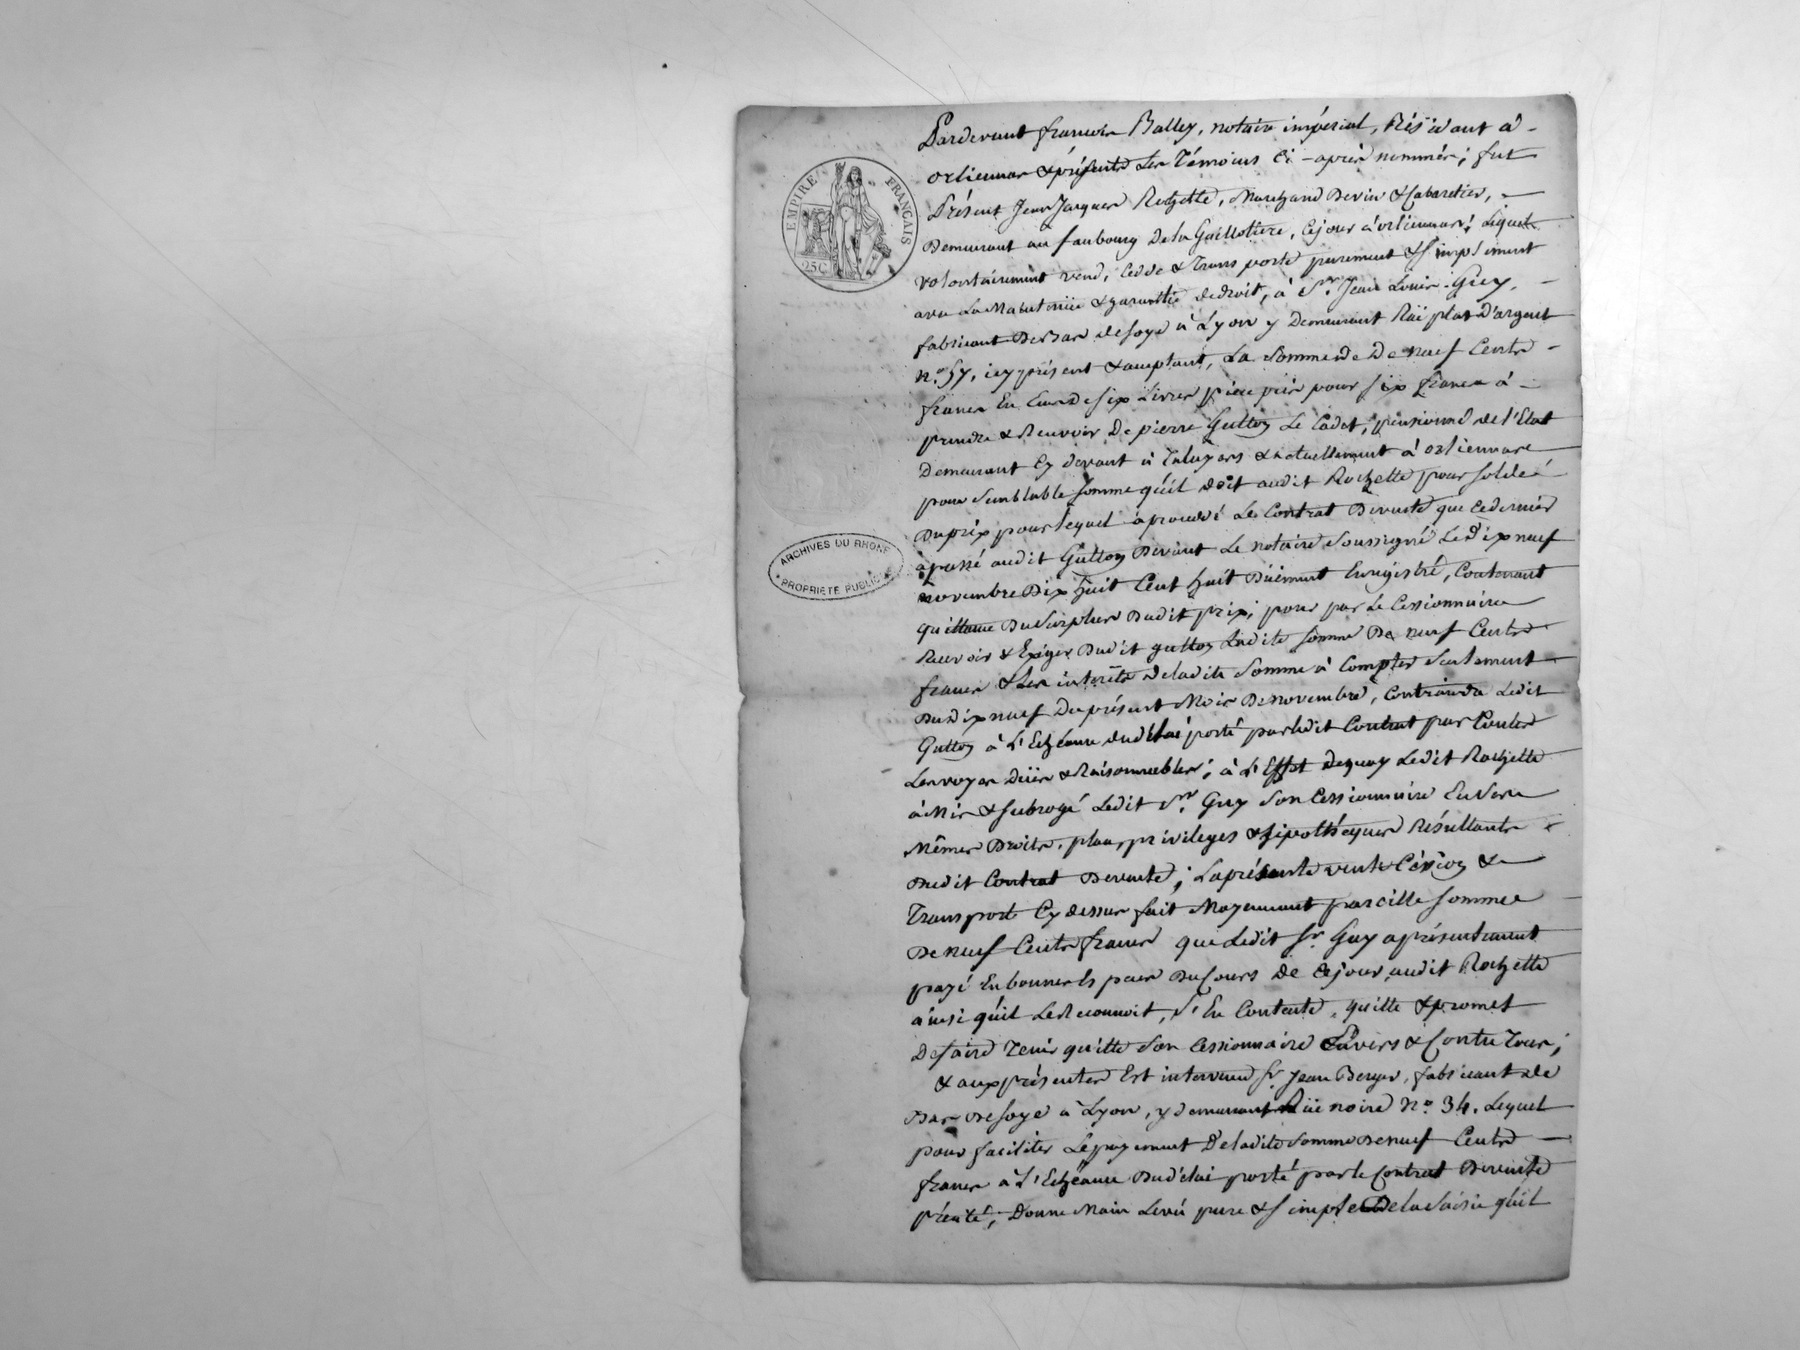 EMPIRE FRANÇAIS
25C
ARCHIVES DU RHONE
PROPRIETE PUBLIQUE
Pardevant francois Balley, notaire impérial, Résidant à
orliennas & présents Les Témoins ci-après nommés; fut
Présent Jean Jacques Rochette, Marchand Devin & Cabaretier,
Demeurant au faubourg Dela Guillotiere, Cejour à orliennas; Lequel
volontairement vend, Cedde & Transporte purement & simplement
avec La Maintenüe & garantie dedroit, à Sr. Jean Louis Guy,
fabricant De Bas desoye à Lyon y Demeurant Rüe plat D'argent
n.o 57, icy présent & acceptant, La Somme de De neuf Cents
francs En Ecus De six Livres pièce pris pour six francs à
prendre & Recevoir De pierre Gutton Le Cadet, pensionné de l'Etat
Demeurant Cy devant à Taluyers & actuellement à orliennas
pour Semblable Somme qu'il doit audit Rochette pour solde
Du prix pour lequel à procedé Le Contrat De vente que Cedernier
à passé audit Gutton Devant Le notaire Soussigné Le Dix neuf
novembre Dix huit Cent huit Düement Enrégistré, Contenant
quittance Du Surplus Dudit prix; pour par Le Cessionnaire
Recevoir & Exiger Dudit gutton Ladite somme De neuf Cents
francs & Les intérêts deladite Somme à Compter Seulement
Du Dix neuf Du présent Mois De novembre, Contraindre Ledit
Gutton à L'Echéance dudélai porté par ledit Contrat par toutes
Les voyes Düës & Raisonnables; à L'Effet dequoy Ledit Rochette
à Mis & subrogé Ledit Sr. Guy Son Cessionnaire En Ses
Mêmes Droits, place, privileges & hipothèques Résultants
Dudit Contrat De vente; La présente vente Cession &
Transport Cy dessus fait Moyennant pareille somme
De neuf Cents francs que Ledit Sr. Guy a présentement
payé En bonnes Espèces Du Cours de Cejour audit Rochette
ainsi qu'il Le Reconnoit, S'En Contente, quitte & promet
De faire Tenir quitte Son Cessionnaire Envers & Contre Tous;
& aux présentes Est intervenu Sr. Jean Berger, fabricant de
Bas De soye à Lyon, y demeurant Rüe noire N.o 34. Lequel
pour faciliter Le payement De ladite Somme De neuf Cents
francs à L'Echéance Du délai porté par le Contrat De vente
précité, Donne Main Levée pure & simple De la saisie qu'il